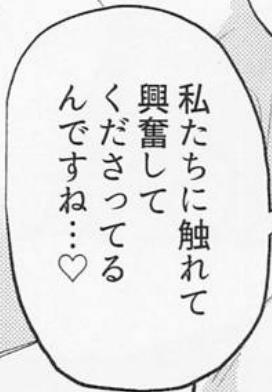 私たちに触れて
興奮して
くださってる
んですね…♡